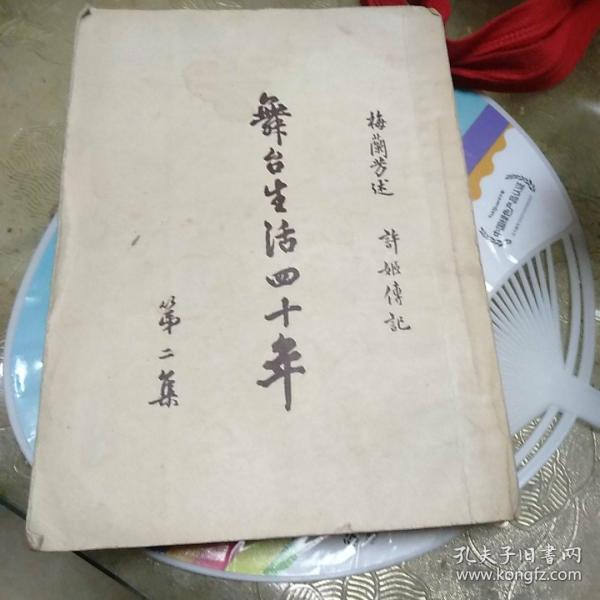 梅蘭芳述 許姬傳記
舞台生活四十年
第二集
中国绿色产品认证
孔夫子旧书网
www.kongfz.com